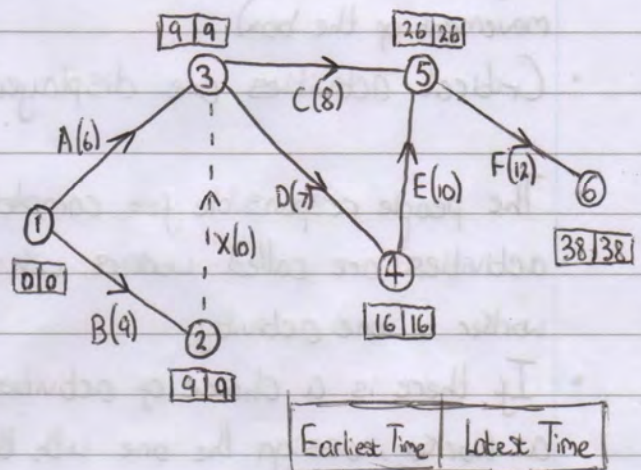 9 9
26 26
3
5
C(8)
A(6)
F(12)
E(10)
D(7)
6
1
X(0)
4
38 38
0 0
B(9)
16 16
2
9 9
Earliest Time Latest Time